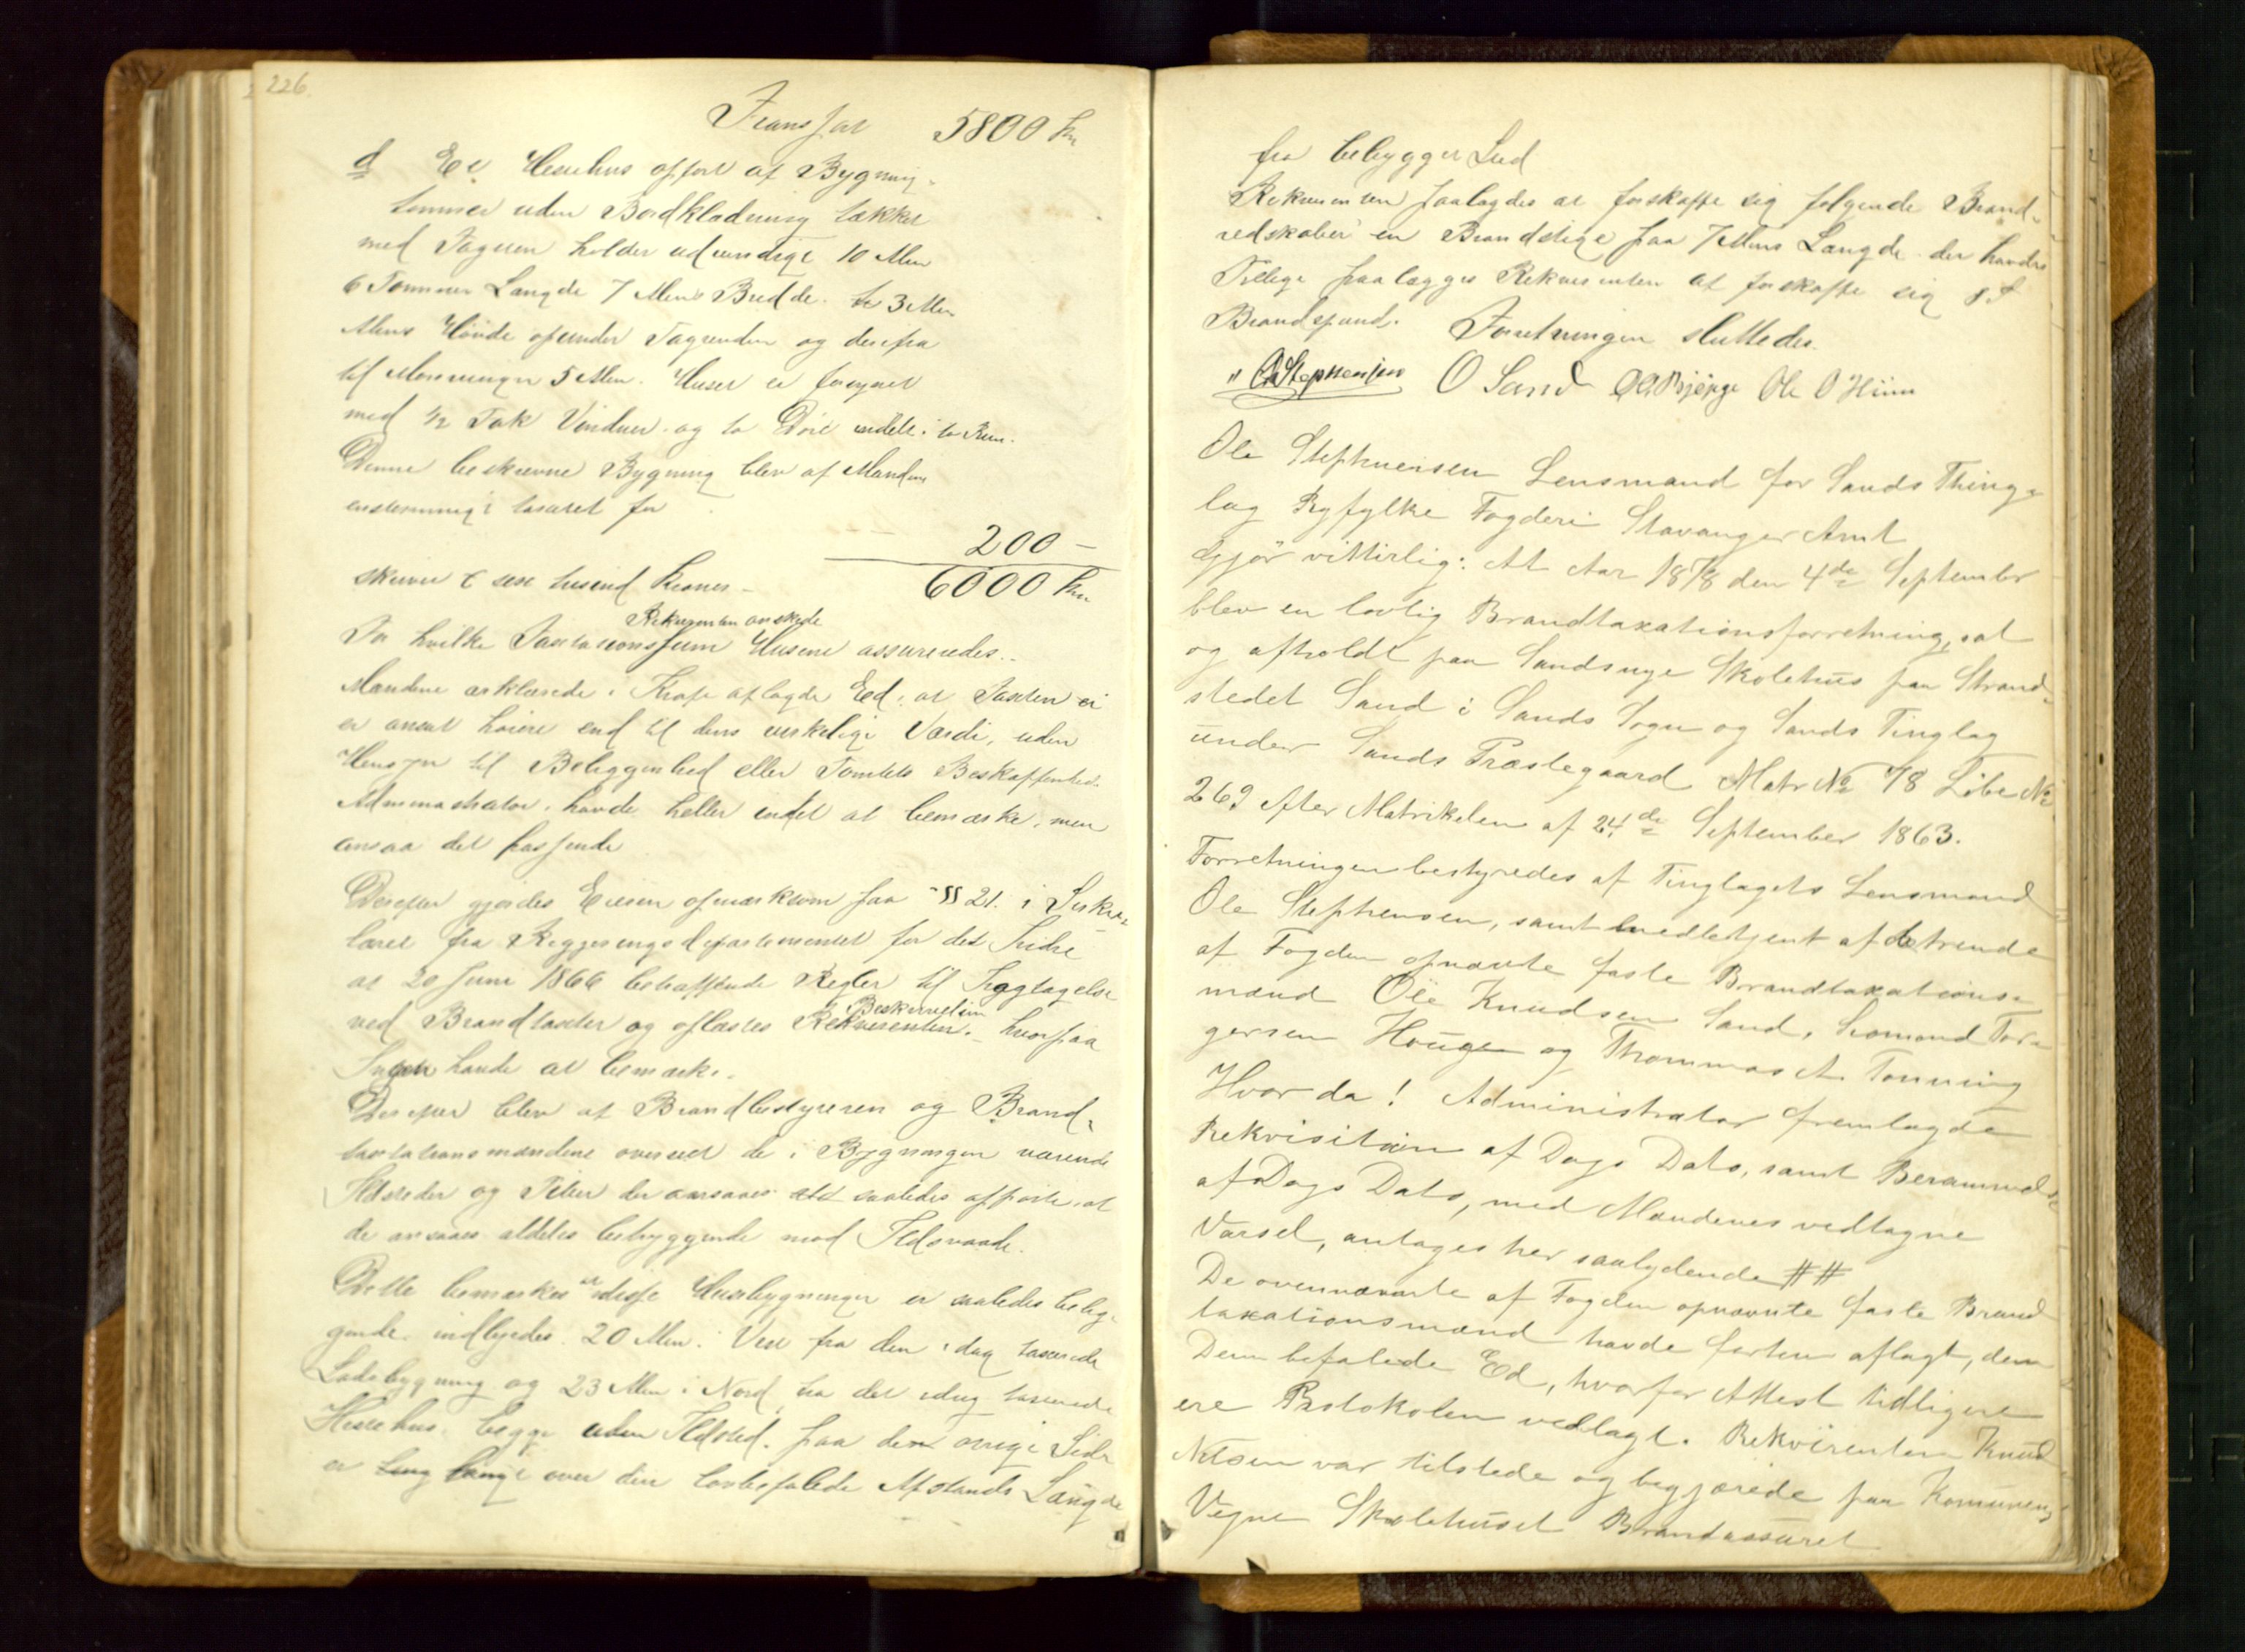 226.
Transport 5800 Kr
d Et Hestehus opført af Bygning-
tømmer uden Bordklædning tækket
med Tagsten holder udvendigt 10 Alen
6 Tommer Længde 7 Alens Bredde. to 3 Alen
Alens Høide opunder Tagrenden og derfra
til Mønningen 5 Alen. Huset er forsynet
med 1/2 Fak Vinduer og to Døre indelt i to Rum.
Denne beskrevne Bygning blev af Mændene
enstemmigt taxeret for
200 –
skriver 6 sex tusind Kroner – 6000 Kr.
Rekvirenten ønskede
For hvilke Taxtationssum Husene assureredes.
Mændene erklærede i Kraft aflagde Ed, at Taxten ei
er ansat høiere end til dens virkelige Værdi, uden
Hensyn til Beliggenhed eller Tomtets Beskaffenhed.
Administrator havde heller intet at bemærke, men
ansaa det passende
Derefter gjordes Eieren opmærksom paa §§ 21. i
fra Regjerings departementet for det Indre
af 20 Juni 1866 betræffende Regler til Iagtagelse
ved Brandtaxter og oplæstes Beskrivelsen Rekvirenten. hvorpaa
Ingen havde at bemærke.
Derefter blev af Brandbestyreren og Brand-
taxtationsmændene overseet de i Bygningen værende
Ildsteder og Piber der ansaaes saaledes opførte, at
de ansaaes aldeles betryggende mod Ildsvaade.
Dette bemærkes at disse Husebygninger er saaledes belig-
gende indbyrdes. 20 Alen i Vest fra den idag taxerede
Ladebygning og 23 Alen i Nord fra det idag taxerede
Hestehus. begge uden Ildsted. paa den øvrige Side
er langt over den lovbefalede Afstands Længde
fra bebygget Sted
Rekvirenten paalagdes at forskaffe sig følgende Brand-
redskaber en Brandstige paa 7 Alens Længde. der havdes
Tillige paalægges Rekvirenten at forskaffe sig
Brandspand. Forretningen sluttedes.
" OStephensen O Sand Ole O Hiim
Ole Stephensen Lensmand for Sands Thing-
lag Ryfylke Fogderi Stavanger Amt
Gjør vitterlig: At Aar 1878 den 4de September
blev en lovlig Brandtaxationsforretning, sat
og afholdt paa Sands nye Skolehus paa Strand-
stedet Sand i Sands Sogn og Sands Tinglag
under Sands Præstegaard Matr № 78 Løbe №
269 efter Matrikelen af 24de September 1863.
Forretningen bestyredes af Tinglagets Lensmand
Ole Stephensen, samt medbetjent af de trende
af Fogden opnævnte faste Brandtaxations-
mænd Ole Knudsen Sand, Lomond Tor-
gersen Houge og Thommas A. Tonning
Hvor da! Administrator fremlagde
Rekvisition af Dags Dato, samt Berammelse
af Dags Dato, med Mændenes vedtagne
Varsel, antages her saalydende ##
De ovennævnte af Fogden opnævnte faste Brand
taxationsmænd havde forhen aflagt, den
Dem befalede Ed, hvorfor Attest tidligere
ere Protokolen vedlagt. Rekvirenten Knud
Nilsen var tilstede og begjærede paa Komunens
Vegne Skolehuset Brandassuret